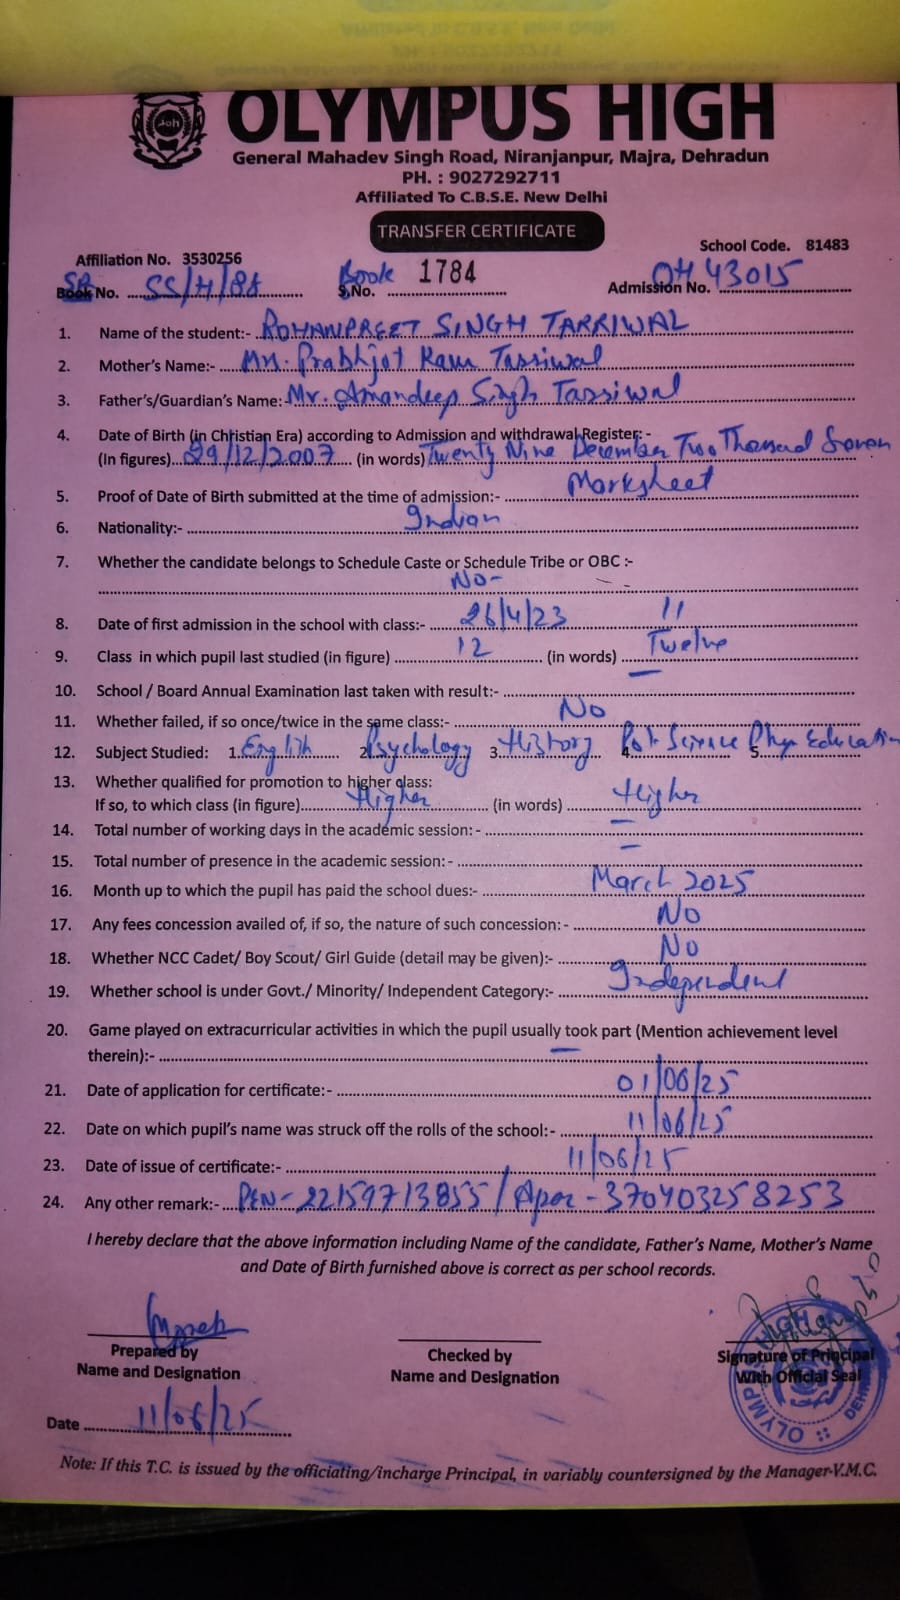 OLYMPUS HIGH
General Mahadev Singh Road, Niranjanpur, Majra, Dehradun
PH. : 9027292711
Affiliated To C.B.S.E. New Delhi
TRANSFER CERTIFICATE
School Code. 81483
Affiliation No. 3530256
SR No. SS/H/88 Book No. 1784 Admission No. OH 43015
1. Name of the student:- ROHANPREET SINGH TARRIWAL
2. Mother's Name:- Mrs. Prabhjot Kaur Tarriwal
3. Father's/Guardian's Name:- Mr. Amandeep Singh Tarriwal
4. Date of Birth (in Christian Era) according to Admission and withdrawal Register: -
(In figures) 29/12/2007 (in words) Twenty Nine December Two Thousand Seven
5. Proof of Date of Birth submitted at the time of admission:- Marksheet
6. Nationality:- Indian
7. Whether the candidate belongs to Schedule Caste or Schedule Tribe or OBC :-
No-
8. Date of first admission in the school with class:- 26/4/23 11
9. Class in which pupil last studied (in figure) 12 (in words) Twelve
10. School / Board Annual Examination last taken with result:- —
11. Whether failed, if so once/twice in the same class:- No
12. Subject Studied: 1. English 2. Psychology 3. History 4. Pol. Science 5. Phy. Education
13. Whether qualified for promotion to higher class:
If so, to which class (in figure) Higher (in words) Higher
14. Total number of working days in the academic session: - —
15. Total number of presence in the academic session: - —
16. Month up to which the pupil has paid the school dues:- March 2025
17. Any fees concession availed of, if so, the nature of such concession: - No
18. Whether NCC Cadet/ Boy Scout/ Girl Guide (detail may be given):- No
19. Whether school is under Govt./ Minority/ Independent Category:- Independent
20. Game played on extracurricular activities in which the pupil usually took part (Mention achievement level
therein):- —
21. Date of application for certificate:- 01/06/25
22. Date on which pupil's name was struck off the rolls of the school:- 11/06/25
23. Date of issue of certificate:- 11/06/25
24. Any other remark:- PEN- 22159713855 / Apar - 370403258253
I hereby declare that the above information including Name of the candidate, Father's Name, Mother's Name
and Date of Birth furnished above is correct as per school records.
Prepared by
Name and Designation
Checked by
Name and Designation
Signature of Principal
With Official Seal
Date 11/06/25
Note: If this T.C. is issued by the officiating/incharge Principal, in variably countersigned by the Manager-V.M.C.